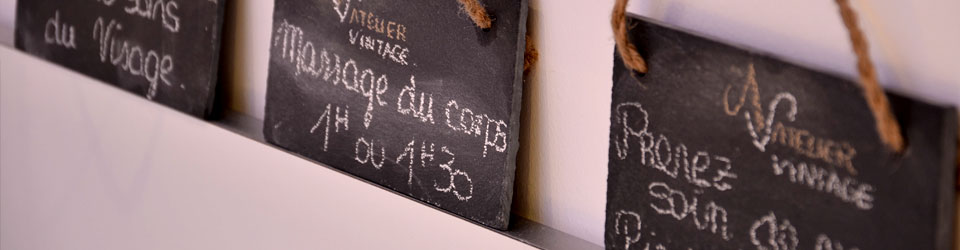 du Visage
Atelier
Vintage
Massage du corps
1H
ou 1H30
AV
Atelier
Vintage
Prenez
soin de